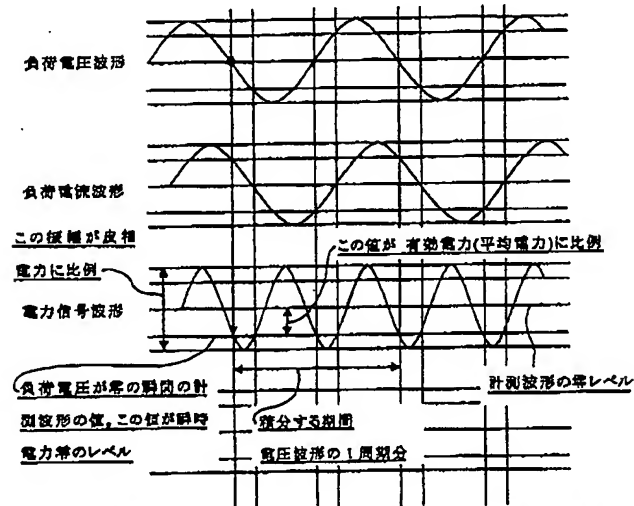 負荷電圧波形
負荷電流波形
この振幅が皮相
電力に比例
この値が 有効電力(平均電力)に比例
電力信号波形
負荷電圧が零の瞬間の計
測波形の値。この値が瞬時
電力零のレベル
計測波形の零レベル
積分する期間
電圧波形の1周期分